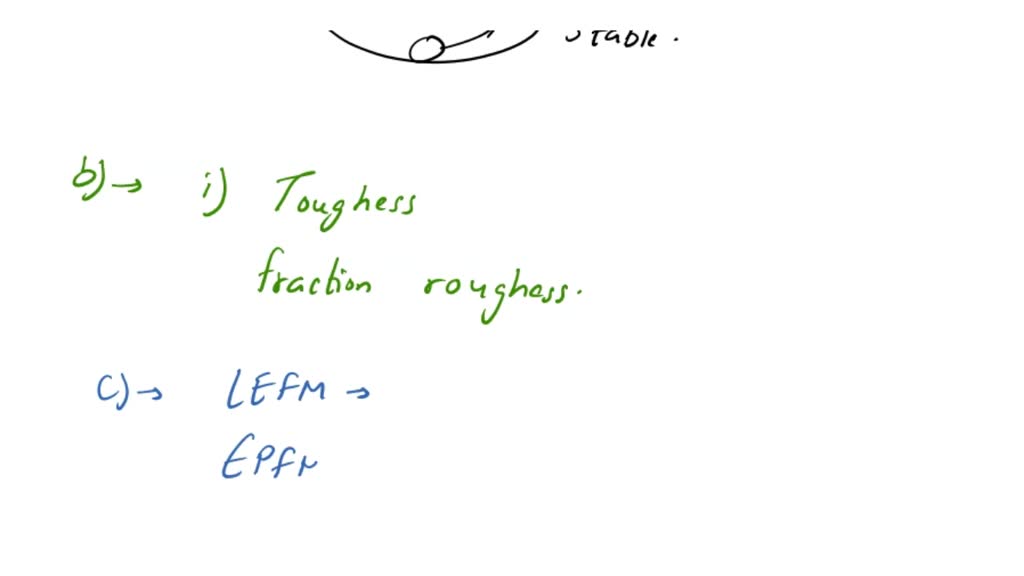 Stable.
b)→ i) Toughess
fraction roughess.
c)→ LEFM →
EPFM